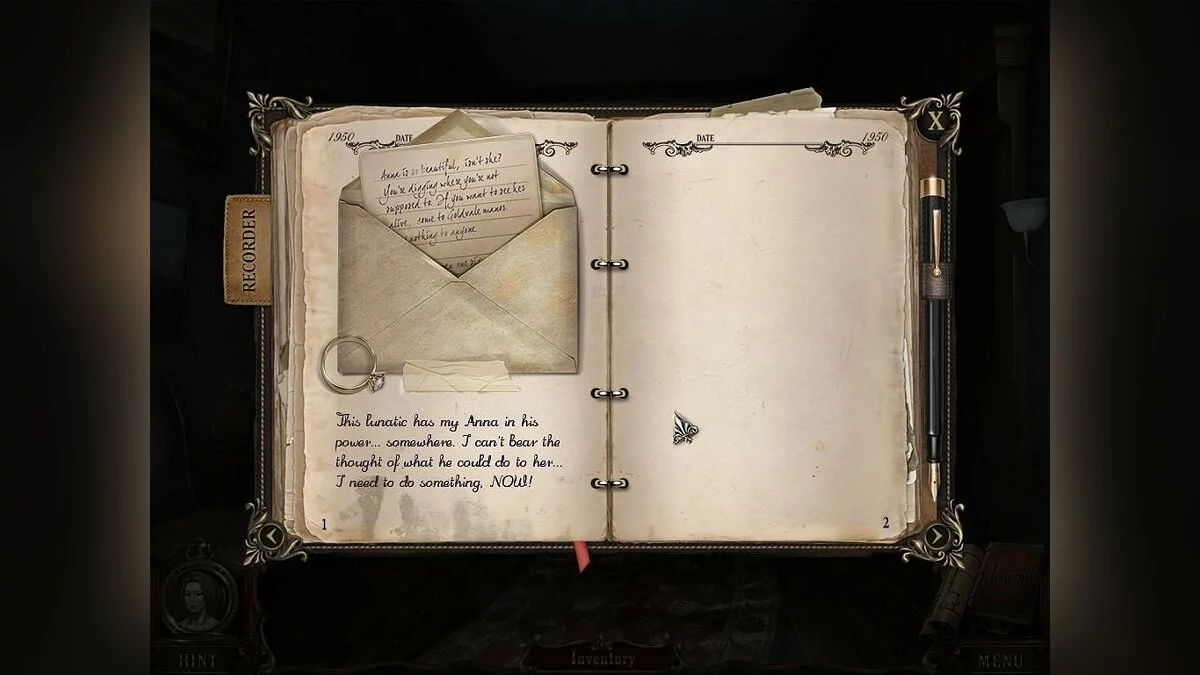 1950
DATE
DATE
1950
X
RECORDER
Anna is so beautiful, isn't she?
You're digging where you're not
supposed to. If you want to see her
alive, come to Goldvale manor.
nothing to anyone
This lunatic has my Anna in his
power... somewhere. I can't bear the
thought of what he could do to her...
I need to do something, NOW!
1
2
HINT
Inventory
Journal
MENU